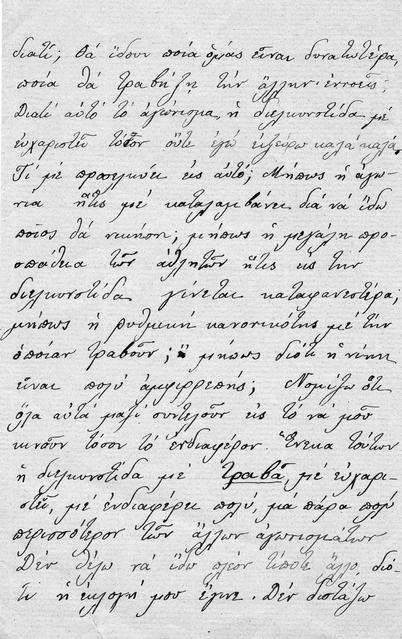 διατί; θά ἴδουν ποία ὁμὰς εἶναι δυνατωτέρα,
ποία θά τραβήξῃ τήν ἄλλην· ἐννοεῖς;
Διατί αὐτό τό ἀγώνισμα, ἡ διελκυνστίδα μέ
εὐχαριστεῖ τόσον οὔτε ἐγώ ἠξεύρω καλά καλά.
Τί μέ προσελκύει εἰς αὐτό; Μήπως ἡ ἀγω-
νία ἥτις μέ καταλαμβάνει διά νά ἰδω
ποῖος θά νικήσῃ; μήπως ἡ μεγάλη προ-
σπάθεια τῶν ἀθλητῶν ἥτις εἰς την
διελκυνστίδα γίνεται καταφανεστέρα;
μήπως ἡ ρυθμική κανονικότης μέ τήν
ὁποίαν τραβοῦν; ἤ μήπως διότι ἡ νίκη
εἶναι πολύ ἀμφιρρεπής; Νομίζω ὅτι
ὅλα αὐτά μαζί συντελοῦν εἰς τό νά μοῦ
κινοῦν τόσον τό ἐνδιαφέρον. Ἕνεκα τούτων
ἡ διελκυνστίδα μέ τραβᾷ, μέ εὐχαρι-
στεῖ, μέ ἐνδιαφέρει πολύ, μά πάρα πολύ
περισσότερον τῶν ἄλλων ἀγωνισμάτων
Δέν θέλω νά ἰδῶ πλέον τίποτε ἄλλο, διό-
τι ἡ ἐκλογή μου ἔγινε. Δέν διστάζω